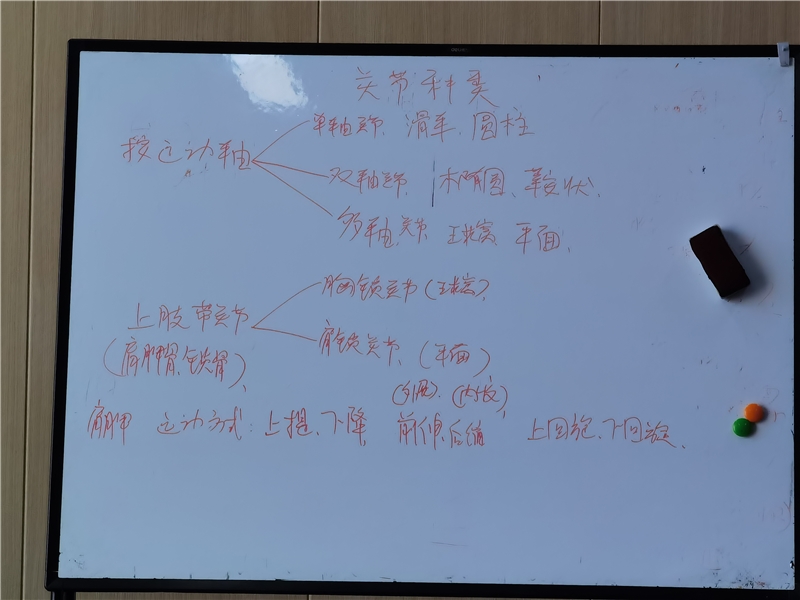 关节种类
单轴关节 滑车、圆柱
按运动轴
双轴关节 椭圆、鞍状、
多轴关节 球窝 平面、
胸锁关节(球窝)、
上肢带关节
肩锁关节、(平面)
(肩胛骨、锁骨)、
(外展)、(内收)
肩胛 运动方式:上提、下降 前伸、后缩 上回旋、下回旋、